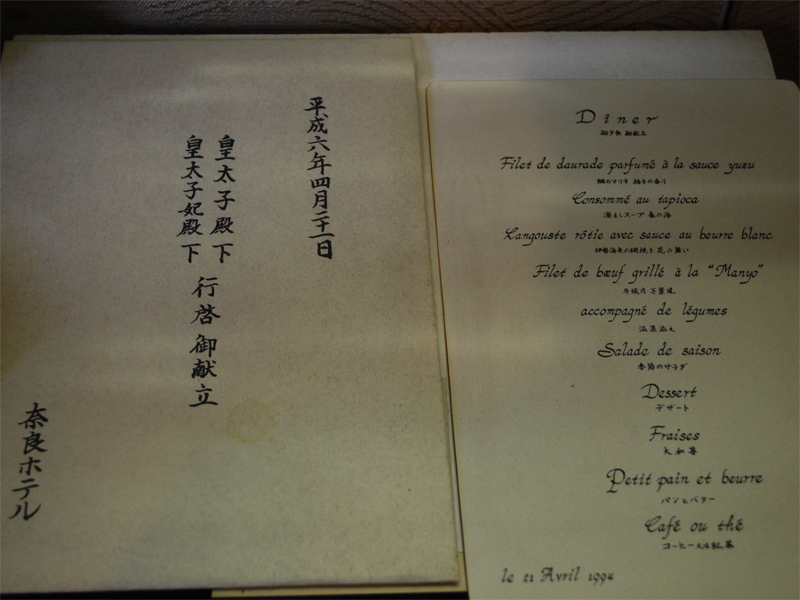 平成六年四月二十一日
皇太子殿下
皇太子妃殿下
行啓御献立
奈良ホテル
Dîner
御夕食 御献立
Filet de daurade parfumé à la sauce yuzu
鯛のマリネ 柚子の香り
Consommé au tapioca
澄ましスープ 春の海
Langouste rôtie avec sauce au beurre blanc
伊勢海老の網焼き 花の舞い
Filet de bœuf grillé à la "Manyo"
牛城肉 万葉風
accompagné de légumes
温菜添え
Salade de saison
季節のサラダ
Dessert
デザート
Fraises
大和苺
Petit pain et beurre
パンとバター
Café ou thé
コーヒー又は紅茶
le 21 Avril 1994